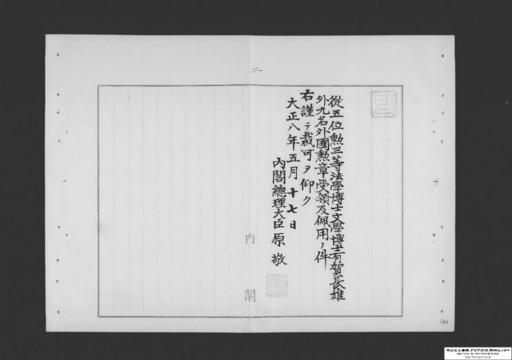 二
從五位勲三等法學博士文學博士有賀長雄
外九名外國勲章受領及佩用ノ件
右謹テ裁可ヲ仰ク
大正八年五月十七日
内閣總理大臣原敬
内閣